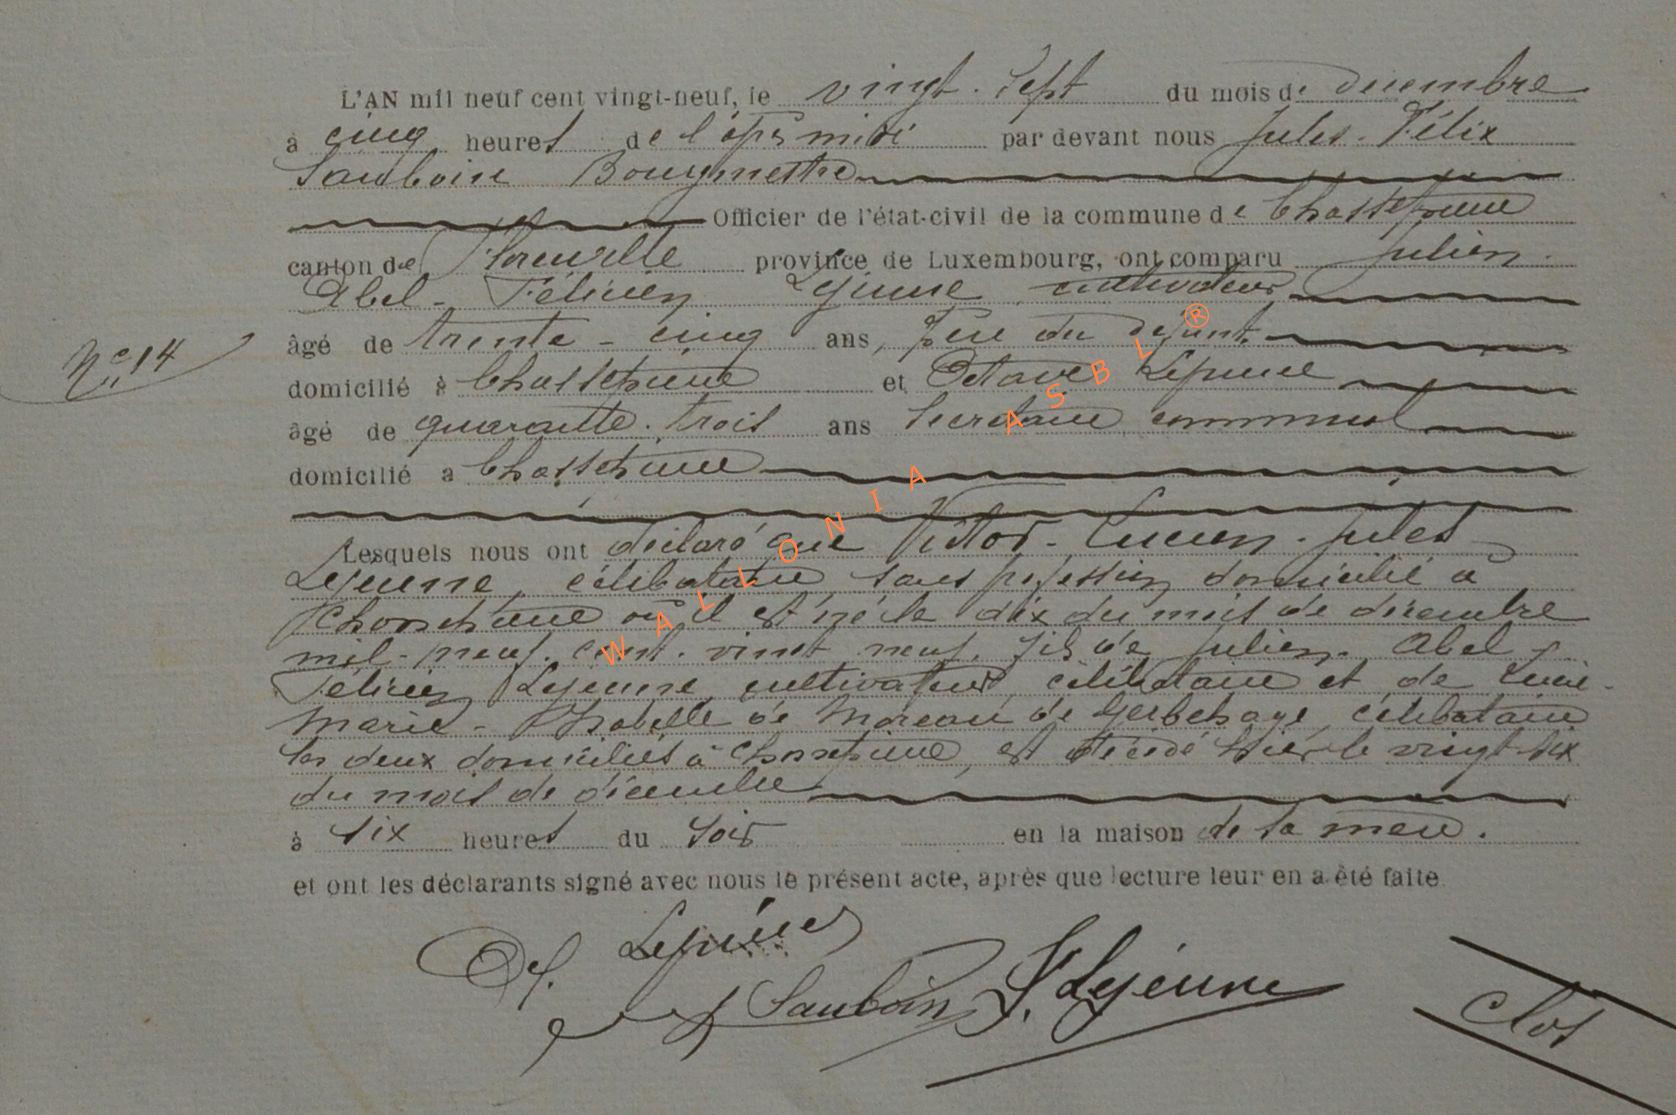 L'AN mil neuf cent vingt-neuf, le vingt-sept du mois de décembre
à cinq heures de l'après midi par devant nous Jules-Félix
Sauboin Bourgmestre
Officier de l'état-civil de la commune de Chassepierre
canton de Florenville province de Luxembourg, ont comparu Julien-
Abel-Félicien Lejeune cultivateur
âgé de trente-cinq ans, père du défunt
domicilié à Chassepierre et Octave Lejeune
âgé de quarante-trois ans secrétaire communal
domicilié à Chassepierre
Lesquels nous ont déclaré que Victor-Lucien-Jules
Lejeune, célibataire, sans profession domicilié à
Chassepierre où il est né le dix du mois de décembre
mil-neuf-cent-vingt neuf, fils de Julien-Abel-
Félicien Lejeune, cultivateur, célibataire et de Lucie-
Marie-Isabelle de Moreau de Gerbehaye célibataire
les deux domiciliés à Chassepierre, est décédé hier le vingt six
du mois de décembre
à six heures du soir en la maison de sa mère.
et ont les déclarants signé avec nous le présent acte, après que lecture leur en a été faite
N° 14
Lejeune
Sauboin J. Lejeune
Clos
WALLONIA ASBL ®